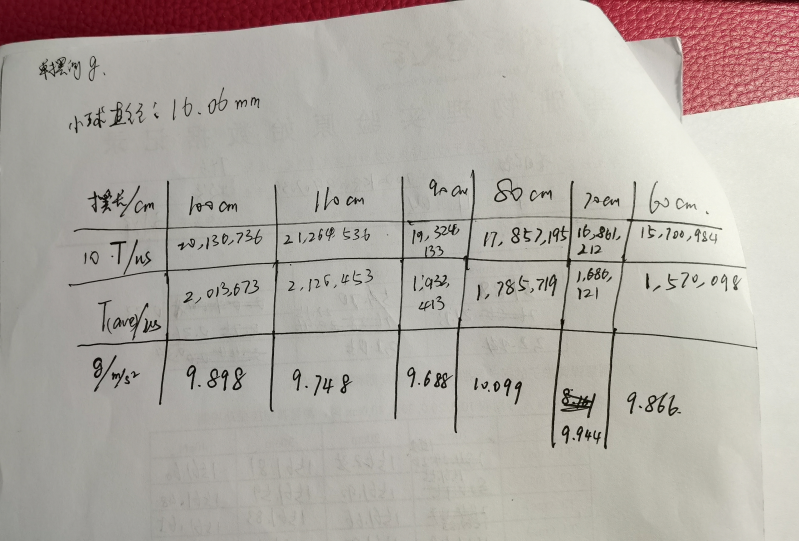 单摆测g.
小球直径: 16.06mm
摆长/cm 100cm 110cm 90cm 80cm 70cm 60cm.
10·T/us 20,130,736 21,264,536 19,324,133 17,857,195 16,861,212 15,700,984
T(ave)/us 2,013,073 2,126,453 1,932,413 1,785,719 1,686,121 1,570,098
g/m/s² 9.898 9.748 9.688 10.099 9.944 9.866.